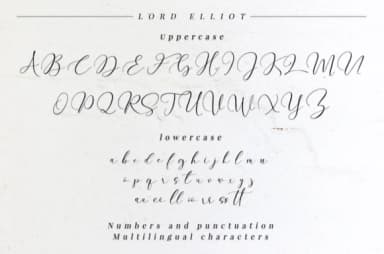 LORD ELLIOT
Uppercase
A B C D E F G H I J K L M N
O P Q R S T U V W X Y Z
lowercase
a b c d e f g h i j k l m n
o p q r s t u v w x y z
Numbers and punctuation
Multilingual characters